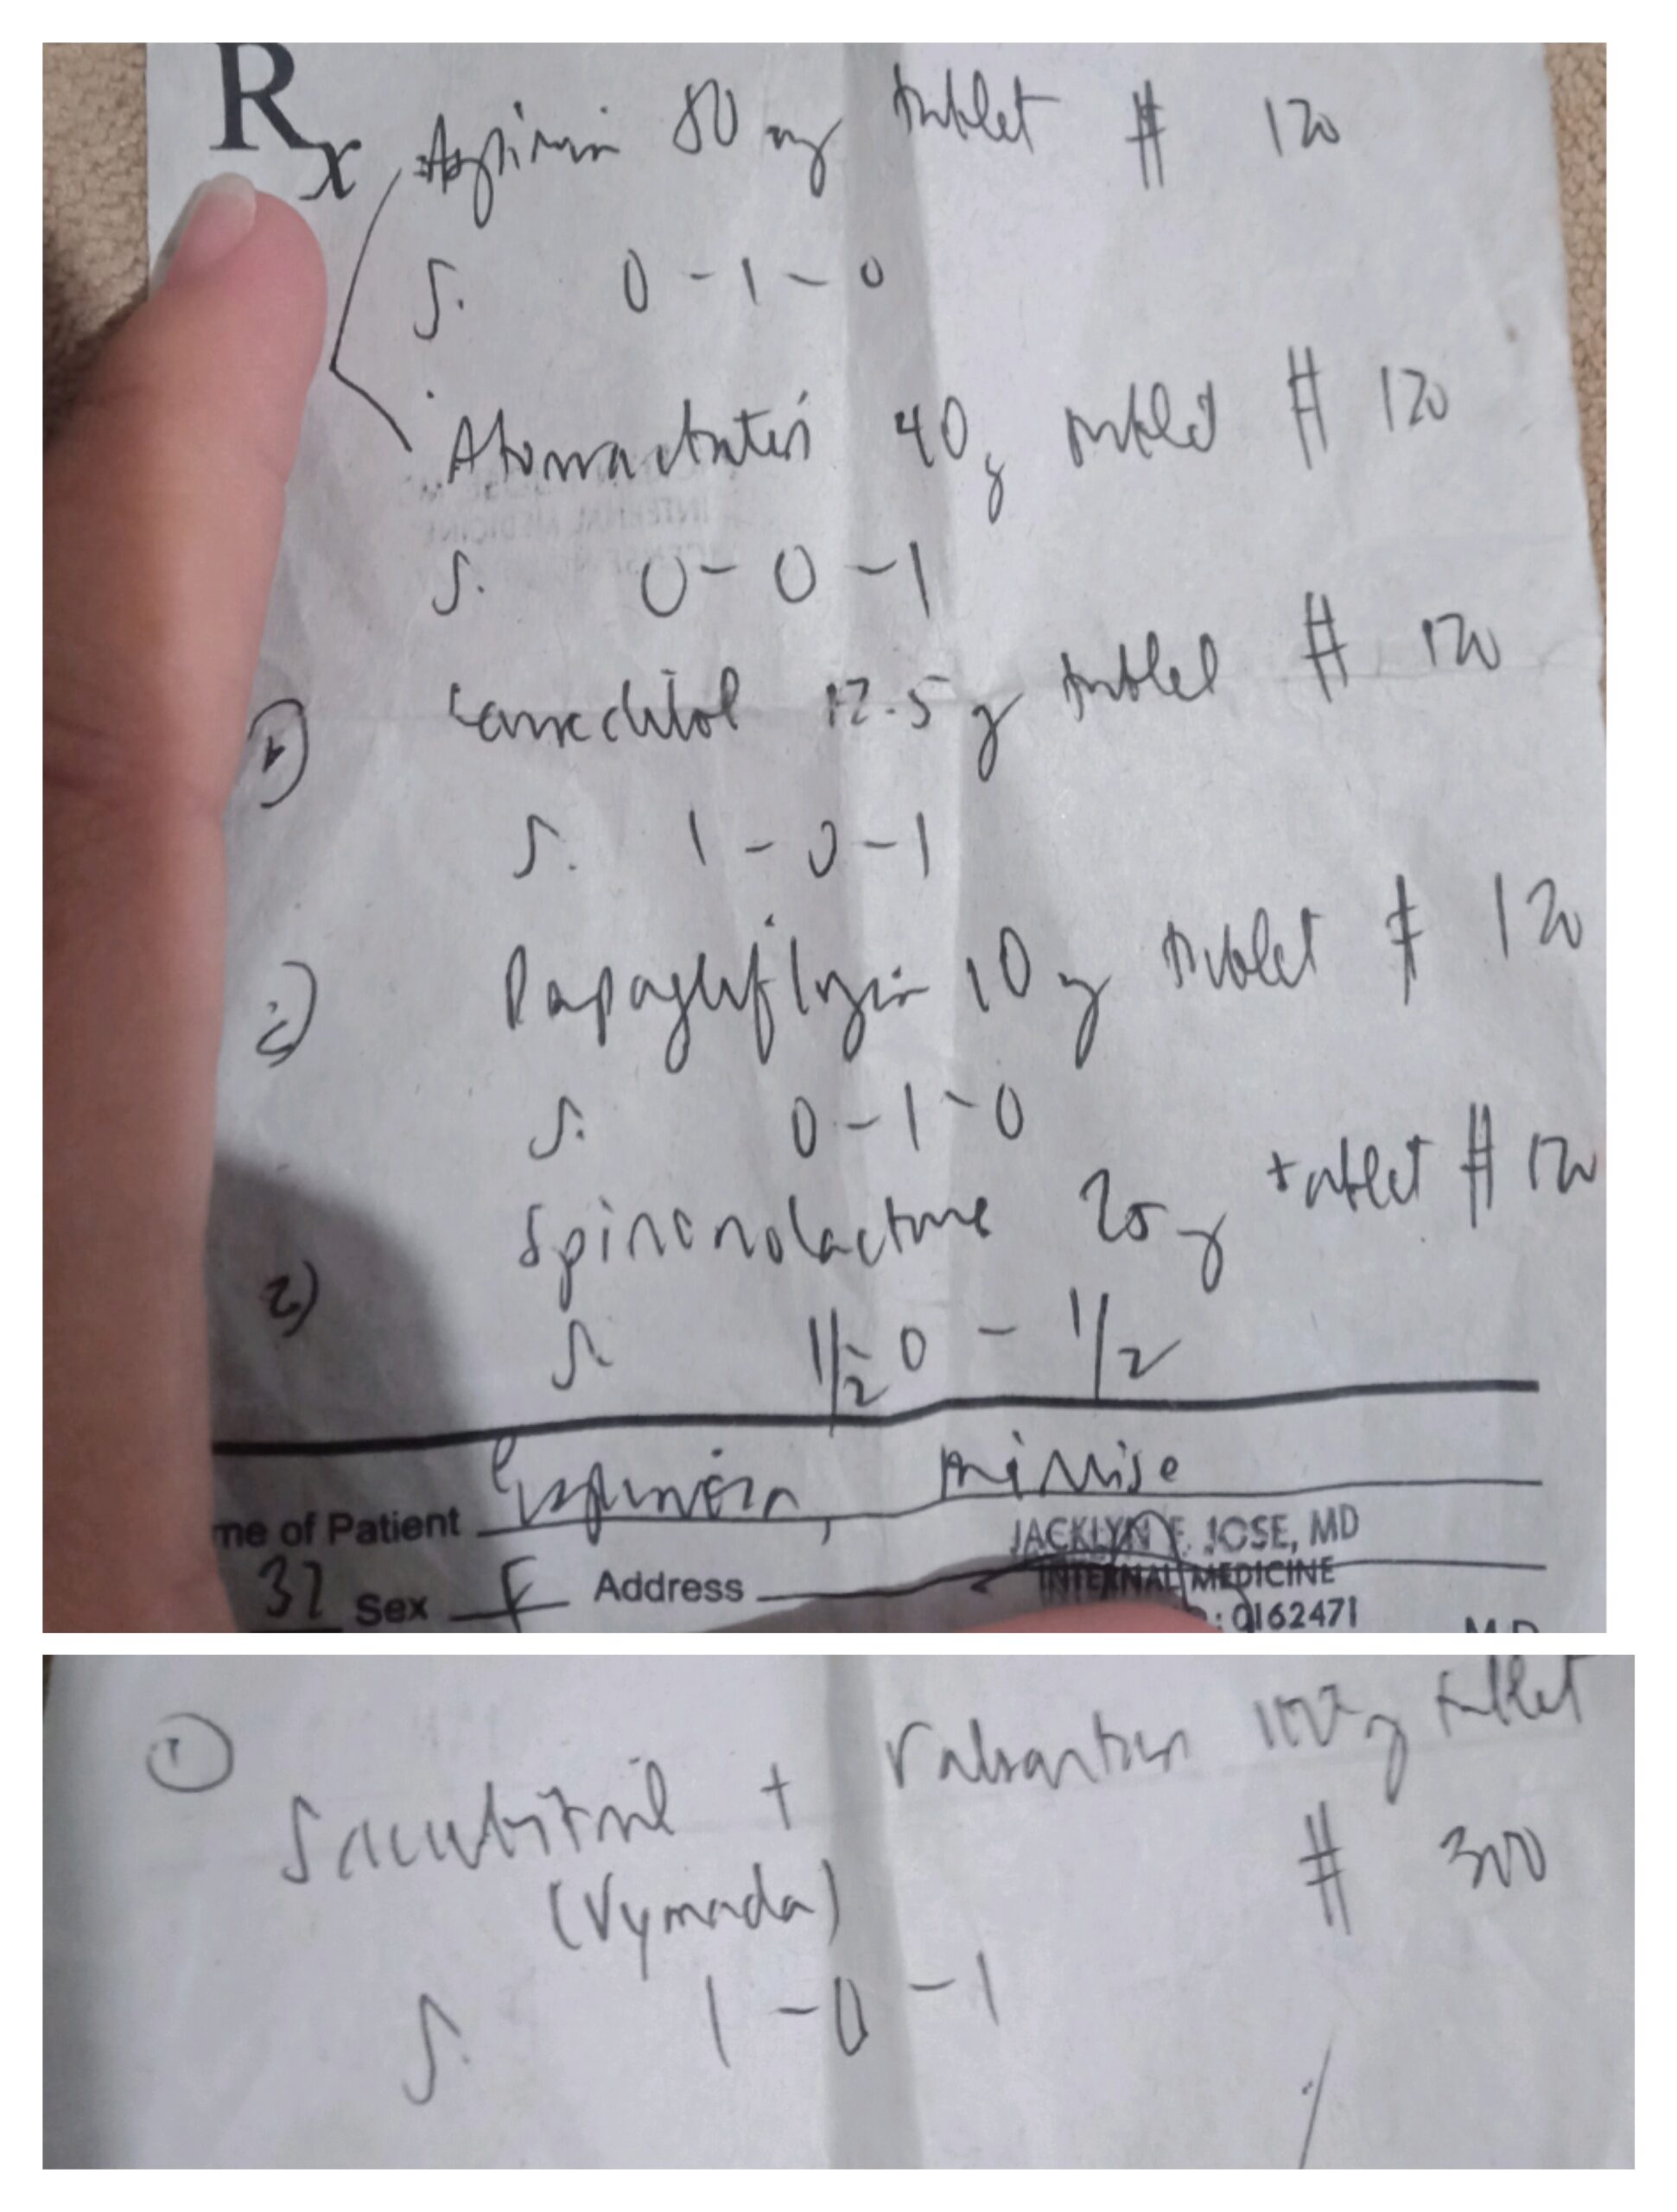 Rx Aspirin 80 mg tablet # 120
S. 0 - 1 - 0
Atorvastatin 40 mg tablet # 120
S. 0 - 0 - 1
Carvedilol 12.5 mg tablet # 120
S. 1 - 0 - 1
Dapagliflozin 10 mg tablet # 120
S. 0 - 1 - 0
Spironolactone 25 mg tablet # 120
2)
S. 1/2 - 0 - 1/2
me of Patient
JACKLYN F. JOSE, MD
37 Sex F Address
INTERNAL MEDICINE
: 0162471
M.D
1
Sacubitril + Valsartan 100 mg tablet
(Vymada) # 300
S. 1 - 0 - 1